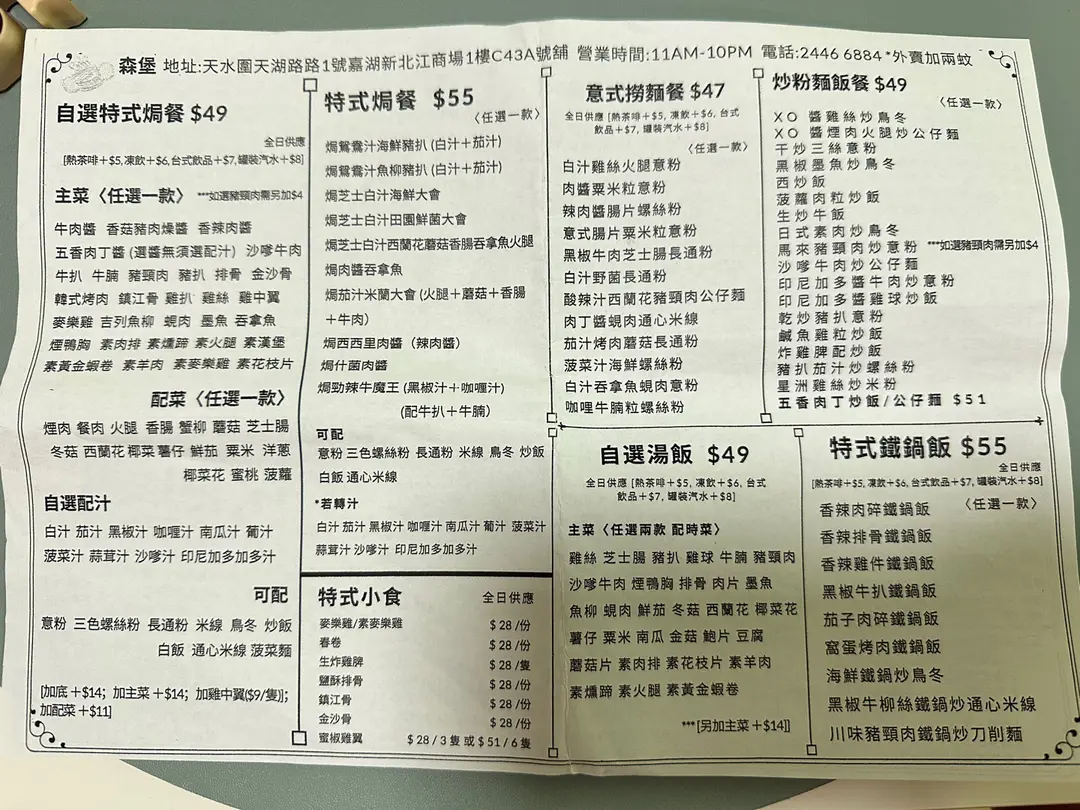 森堡 地址:天水圍天湖路路1號嘉湖新北江商場1樓C43A號舖 營業時間:11AM-10PM 電話:2446 6884 *外賣加兩蚊
自選特式焗餐 $49
全日供應
[熱茶啡+$5,凍飲+$6,台式飲品+$7,罐裝汽水+$8]
主菜〈任選一款〉 ***如選豬頸肉需另加$4
牛肉醬 香菇豬肉燥醬 香辣肉醬
五香肉丁醬 (選醬無須選配汁) 沙嗲牛肉
牛扒 牛腩 豬頸肉 豬扒 排骨 金沙骨
韓式烤肉 鎮江骨 雞扒 雞絲 雞中翼
麥樂雞 吉列魚柳 蜆肉 墨魚 吞拿魚
煙鴨胸 素肉排 素燻蹄 素火腿 素漢堡
素黃金蝦卷 素羊肉 素麥樂雞 素花枝片
配菜〈任選一款〉
煙肉 餐肉 火腿 香腸 蟹柳 蘑菇 芝士腸
冬菇 西蘭花 椰菜 薯仔 鮮茄 粟米 洋蔥
椰菜花 蜜桃 菠蘿
自選配汁
白汁 茄汁 黑椒汁 咖喱汁 南瓜汁 葡汁
菠菜汁 蒜茸汁 沙嗲汁 印尼加多加多汁
可配
意粉 三色螺絲粉 長通粉 米線 烏冬 炒飯
白飯 通心米線 菠菜麵
[加底+$14; 加主菜+$14; 加雞中翼($9/隻)];
加配菜+$11]
特式焗餐 $55
〈任選一款〉
焗鴛鴦汁海鮮豬扒 (白汁+茄汁)
焗鴛鴦汁魚柳豬扒 (白汁+茄汁)
焗芝士白汁海鮮大會
焗芝士白汁田園鮮菌大會
焗芝士白汁西蘭花蘑菇香腸吞拿魚火腿
焗肉醬吞拿魚
焗茄汁米蘭大會 (火腿+蘑菇+香腸
+牛肉)
焗西西里肉醬 (辣肉醬)
焗什菌肉醬
焗勁辣牛魔王 (黑椒汁+咖喱汁)
(配牛扒+牛腩)
可配
意粉 三色螺絲粉 長通粉 米線 烏冬 炒飯
白飯 通心米線
*若轉汁
白汁 茄汁 黑椒汁 咖喱汁 南瓜汁 葡汁 菠菜汁
蒜茸汁 沙嗲汁 印尼加多加多汁
特式小食 全日供應
麥樂雞/素麥樂雞 $28/份
春卷 $28/份
生炸雞脾 $28/隻
鹽酥排骨 $28/份
鎮江骨 $28/份
金沙骨 $28/份
蜜椒雞翼 $28/3隻 或 $51/6隻
意式撈麵餐 $47
全日供應 [熱茶啡+$5, 凍飲+$6, 台式
飲品+$7, 罐裝汽水+$8]
〈任選一款〉
白汁雞絲火腿意粉
肉醬粟米粒意粉
辣肉醬腸片螺絲粉
意式腸片粟米粒意粉
黑椒牛肉芝士腸長通粉
白汁野菌長通粉
酸辣汁西蘭花豬頸肉公仔麵
肉丁醬蜆肉通心米線
茄汁烤肉蘑菇長通粉
菠菜汁海鮮螺絲粉
白汁吞拿魚蜆肉意粉
咖哩牛腩粒螺絲粉
炒粉麵飯餐 $49
〈任選一款〉
XO 醬雞絲炒烏冬
XO 醬煙肉火腿炒公仔麵
干炒三絲意粉
黑椒墨魚炒烏冬
西炒飯
菠蘿肉粒炒飯
生炒牛飯
日式素肉炒烏冬
馬來豬頸肉炒意粉 ***如選豬頸肉需另加$4
沙嗲牛肉炒公仔麵
印尼加多醬牛肉炒意粉
印尼加多醬雞球炒飯
乾炒豬扒意粉
鹹魚雞粒炒飯
炸雞脾配炒飯
豬扒茄汁炒螺絲粉
星洲雞絲炒米粉
五香肉丁炒飯/公仔麵 $51
自選湯飯 $49
全日供應 [熱茶啡+$5, 凍飲+$6, 台式
飲品+$7, 罐裝汽水+$8]
主菜〈任選兩款 配時菜〉
雞絲 芝士腸 豬扒 雞球 牛腩 豬頸肉
沙嗲牛肉 煙鴨胸 排骨 肉片 墨魚
魚柳 蜆肉 鮮茄 冬菇 西蘭花 椰菜花
薯仔 粟米 南瓜 金菇 鮑片 豆腐
蘑菇片 素肉排 素花枝片 素羊肉
素燻蹄 素火腿 素黃金蝦卷
***[另加主菜+$14]]
特式鐵鍋飯 $55
全日供應
[熱茶啡+$5, 凍飲+$6, 台式飲品+$7, 罐裝汽水+$8]
〈任選一款〉
香辣肉碎鐵鍋飯
香辣排骨鐵鍋飯
香辣雞件鐵鍋飯
黑椒牛扒鐵鍋飯
茄子肉碎鐵鍋飯
窩蛋烤肉鐵鍋飯
海鮮鐵鍋炒烏冬
黑椒牛柳絲鐵鍋炒通心米線
川味豬頸肉鐵鍋炒刀削麵